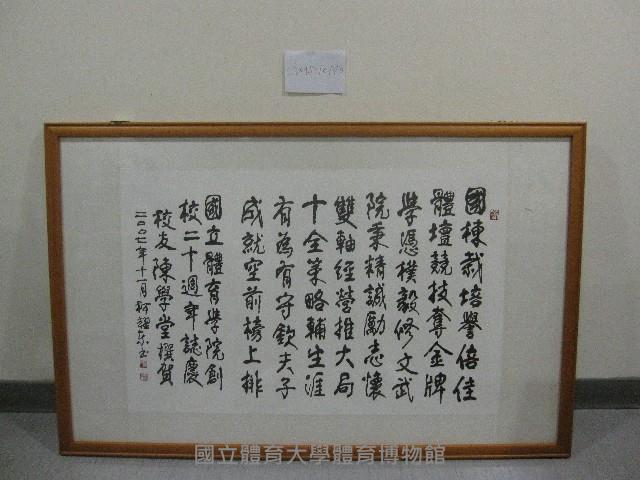 國棟栽培譽倍佳
體壇競技奪金牌
學憑樸毅修文武
院秉精誠勵志懷
雙軸經營推大局
十全策略輔生涯
有為有守欽夫子
成就空前榜上排
國立體育學院創
校二十週年誌慶
校友陳學堂撰賀
二〇〇七年十一月
國立體育大學體育博物館